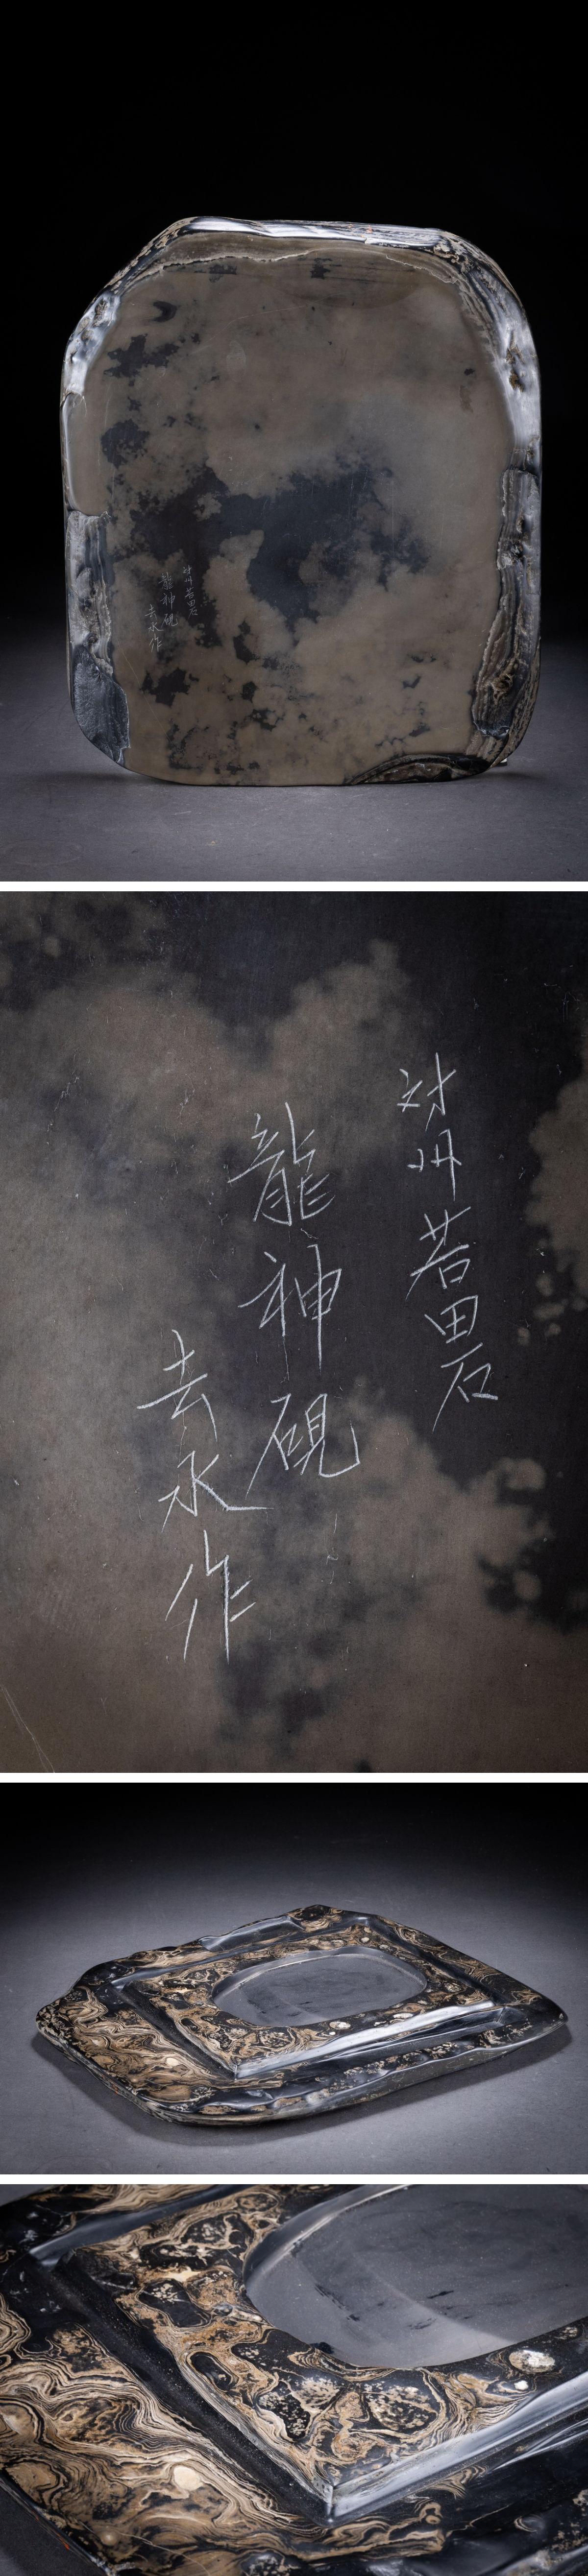 対州若田石
龍神硯
去水作